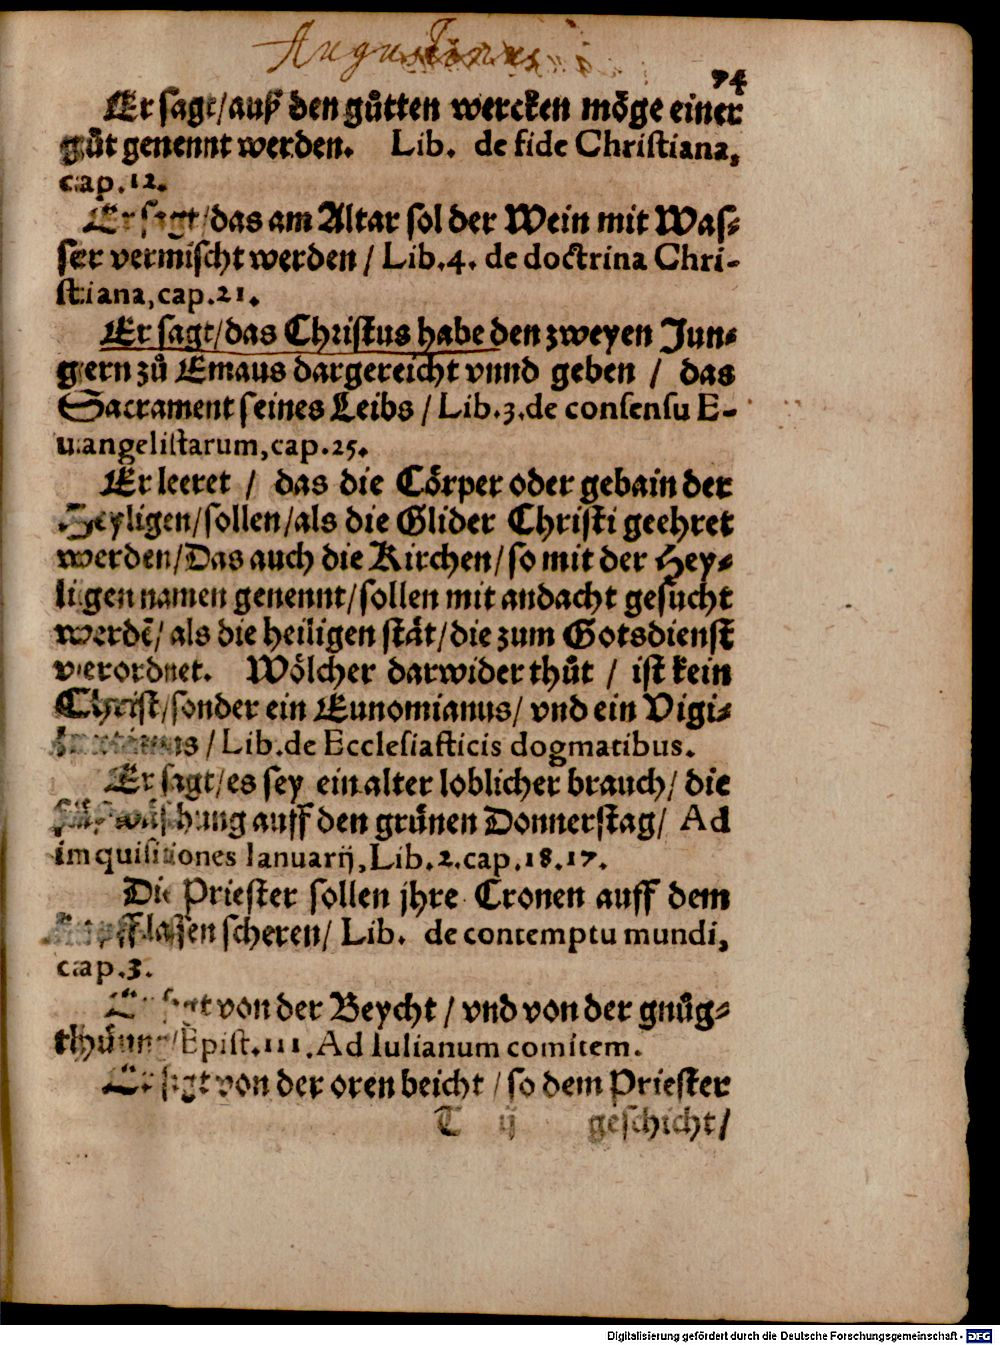 Augustinus
74
Er sagt/auß den gůtten wercken möge einer
gůt genennt werden. Lib. de fide Christiana,
cap.12.
Er sagt/das am Altar sol der Wein mit Was⸗
ser vermischt werden / Lib.4. de doctrina Chri-
stiana,cap.21.
Er sagt/das Christus habe den zweyen Jun⸗
gern zů Emaus dargereicht vnnd geben / das
Sacrament seines Leibs / Lib.3.de consensu E-
uangelistarum,cap.25.
Er leeret / das die Cörper oder gebain der
Heyligen/sollen/als die Glider Christi geehret
werden/Das auch die Kirchen/so mit der Hey⸗
ligen namen genennt/sollen mit andacht gesucht
werdē/als die heiligen stät/die zum Gotsdienst
verordnet. Wölcher darwider thůt / ist kein
Christ/sonder ein Eunomianus/ vnd ein Vigi⸗
/ Lib.de Ecclesiasticis dogmatibus.
Er sagt/es sey ein alter loblicher brauch/ die
auff den grünen Donnerstag/ Ad
inquisitiones Ianuarij,Lib.2.cap.18.17.
Die Priester sollen jhre Cronen auff dem
lassen scheren/ Lib. de contemptu mundi,
cap.3.
Er sagt von der Beycht / vnd von der gnůg⸗
thůung/Epist.111.Ad Iulianum comitem.
Er sagt von der oren beicht / so dem Priester
T ij geschicht/
Digitalisierung gefördert durch die Deutsche Forschungsgemeinschaft - DFG